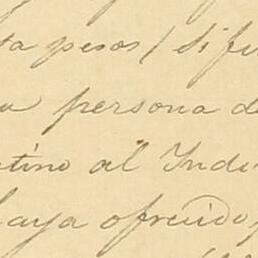 ta pesos / Si fu
a persona de
tino al Indi
haya ofrecido,